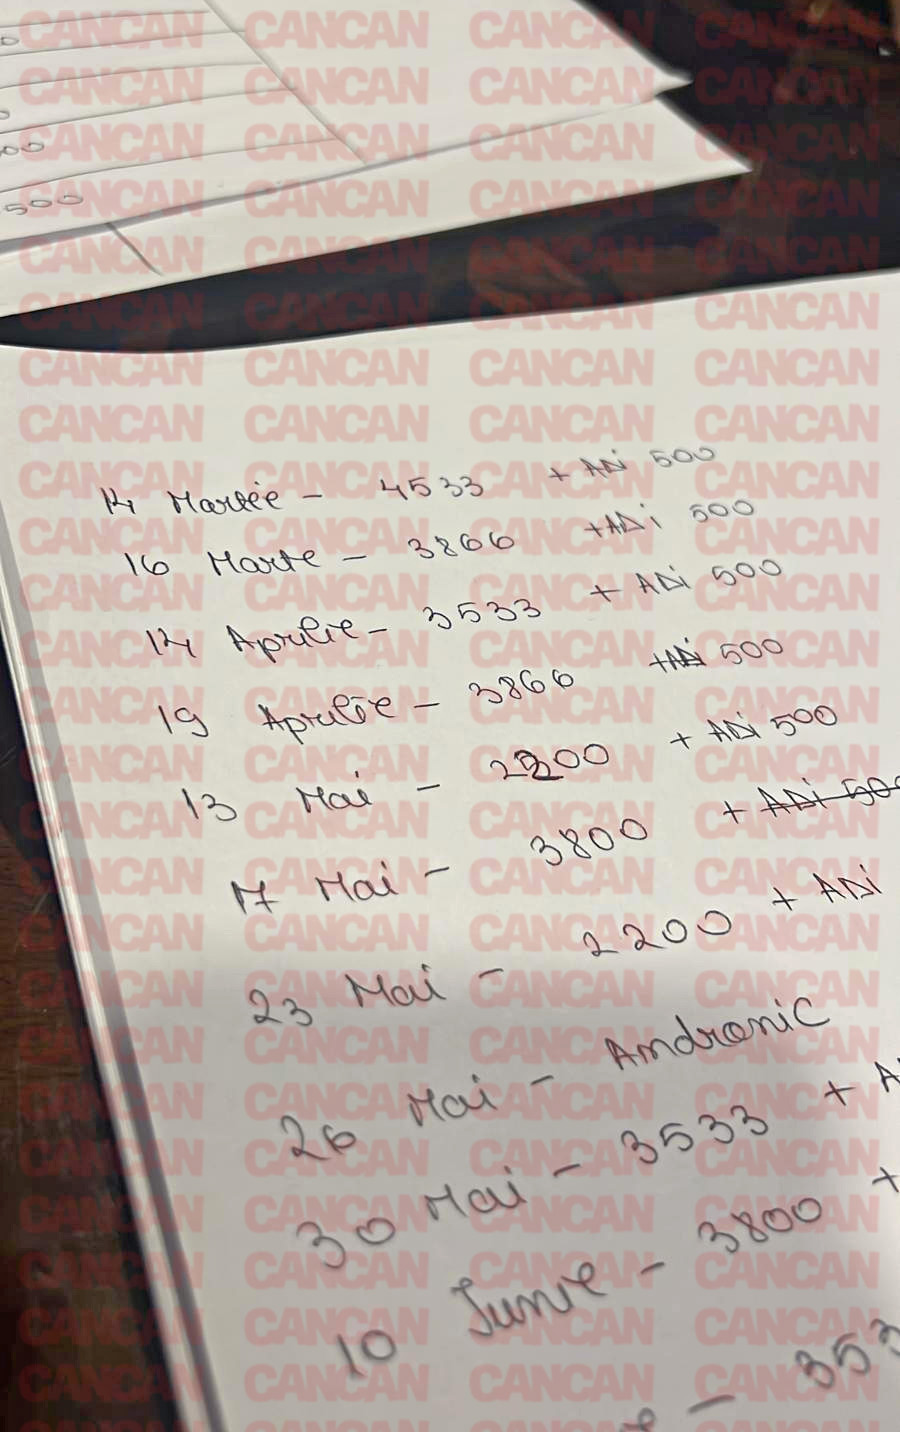 CANCAN
500
14 Martie - 4533 + ADi 500
16 Marte - 3866 + ADi 500
14 Aprilie - 3533 + ADi 500
19 Aprilie - 3866 + ADi 500
13 Mai - 2200 + ADi 500
17 Mai - 3800 + ADi 50
23 Mai - 2200 + ADi
26 Mai - Andronic
30 Mai - 3533 + A
10 Iunie - 3800 +
- 353